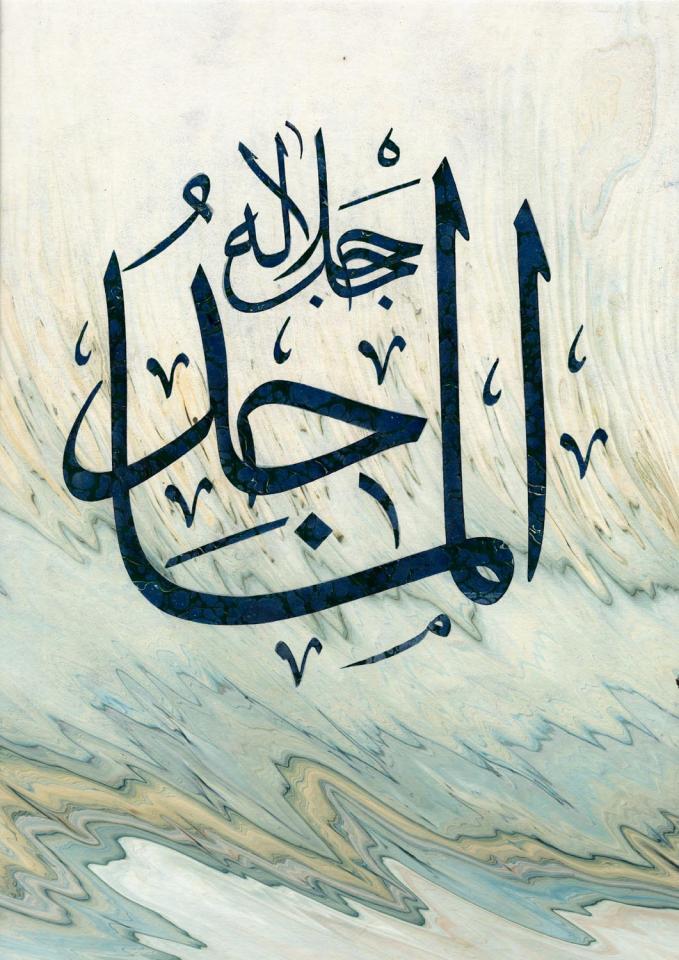 جل جلاله
الماجد